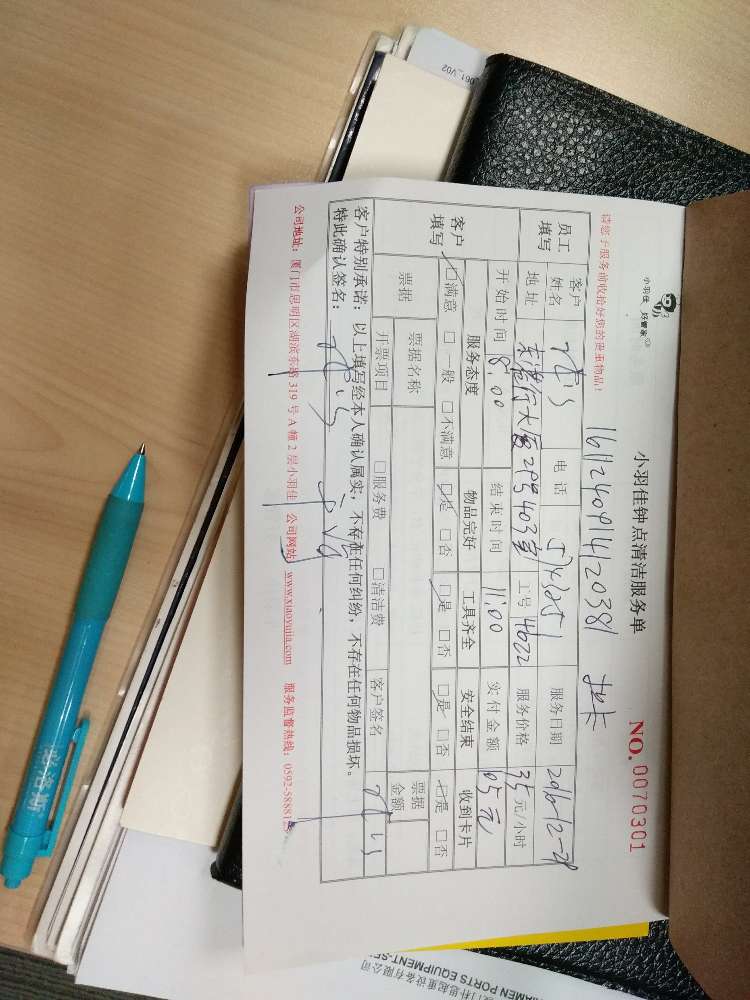 小羽佳 好管家
小羽佳钟点清洁服务单
NO. 0070301
1611240914120381
请您于服务前收拾好您的贵重物品!
员工填写 客户姓名 电话 服务日期 2016-12-28
地址 东港行大厦 403室 工号 4622 服务价格 35元/小时
开始时间 8:00 结束时间 11:00 实付金额 105元
客户填写 服务态度 物品完好 工具齐全 安全结束 收到卡片
□满意 □一般 □不满意 □是 □否 □是 □否 □是 □否 □是 □否
票据 票据名称 票据金额
开票项目 □服务费 □清洁费 客户签名
客户特别承诺:以上填写经本人确认属实,不存在任何纠纷,不存在任何物品损坏。
特此确认签名:
公司地址:厦门市思明区湖滨东路319号A幢2层小羽佳 公司网站:www.xiaoyujia.com 服务监督热线:0592-5888
061_V02
起重设备有限公司
AMEN PORTS EQUIPMENT-SE